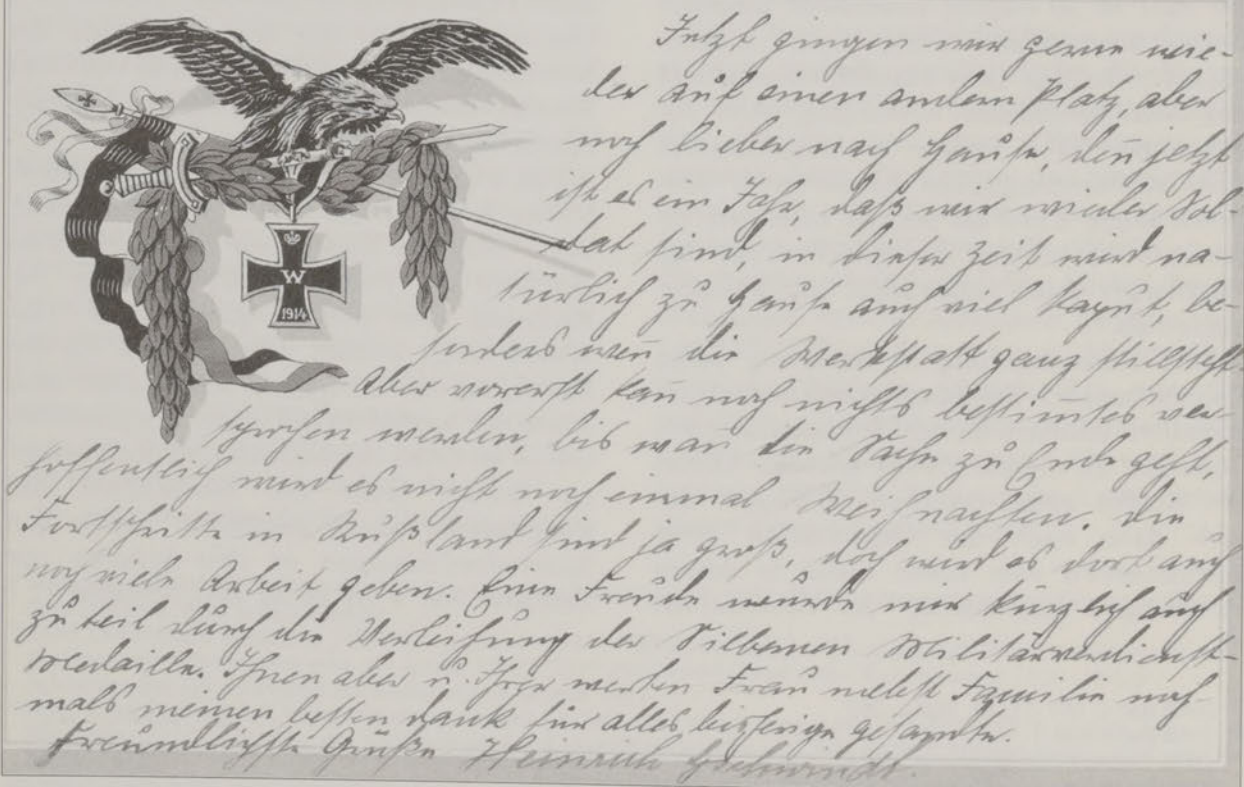 W
1914
Jetzt gingen wir gerne wie-
der auf einen andern Platz, aber
noch lieber nach Hause, den̄ jetzt
ist es ein Jahr, daß wir wieder Sol-
dat sind, in dieser Zeit wird na-
türlich zu Hause auch viel kaput, be-
sonders wen̄ die Werkstatt ganz stillsteht.
Aber vorerst kan̄ noch nichts bestim̄tes ver-
sprochen werden, bis wan̄ die Sache zu Ende geht,
hoffentlich wird es nicht noch einmal Weihnachten. Die
Fortschritte in Rußland sind ja groß, doch wird es dort auch
noch viele Arbeit geben. Eine Freude wurde mir kürzlich auch
zu teil durch die Verleihung der Silbernen Militärverdienst-
medaille. Ihnen aber u. Ihrer werten Frau nebst Familie noch-
mals meinen besten Dank für alles bisherige gesandte.
Freundlichste Grüße Heinrich Gschwindt.